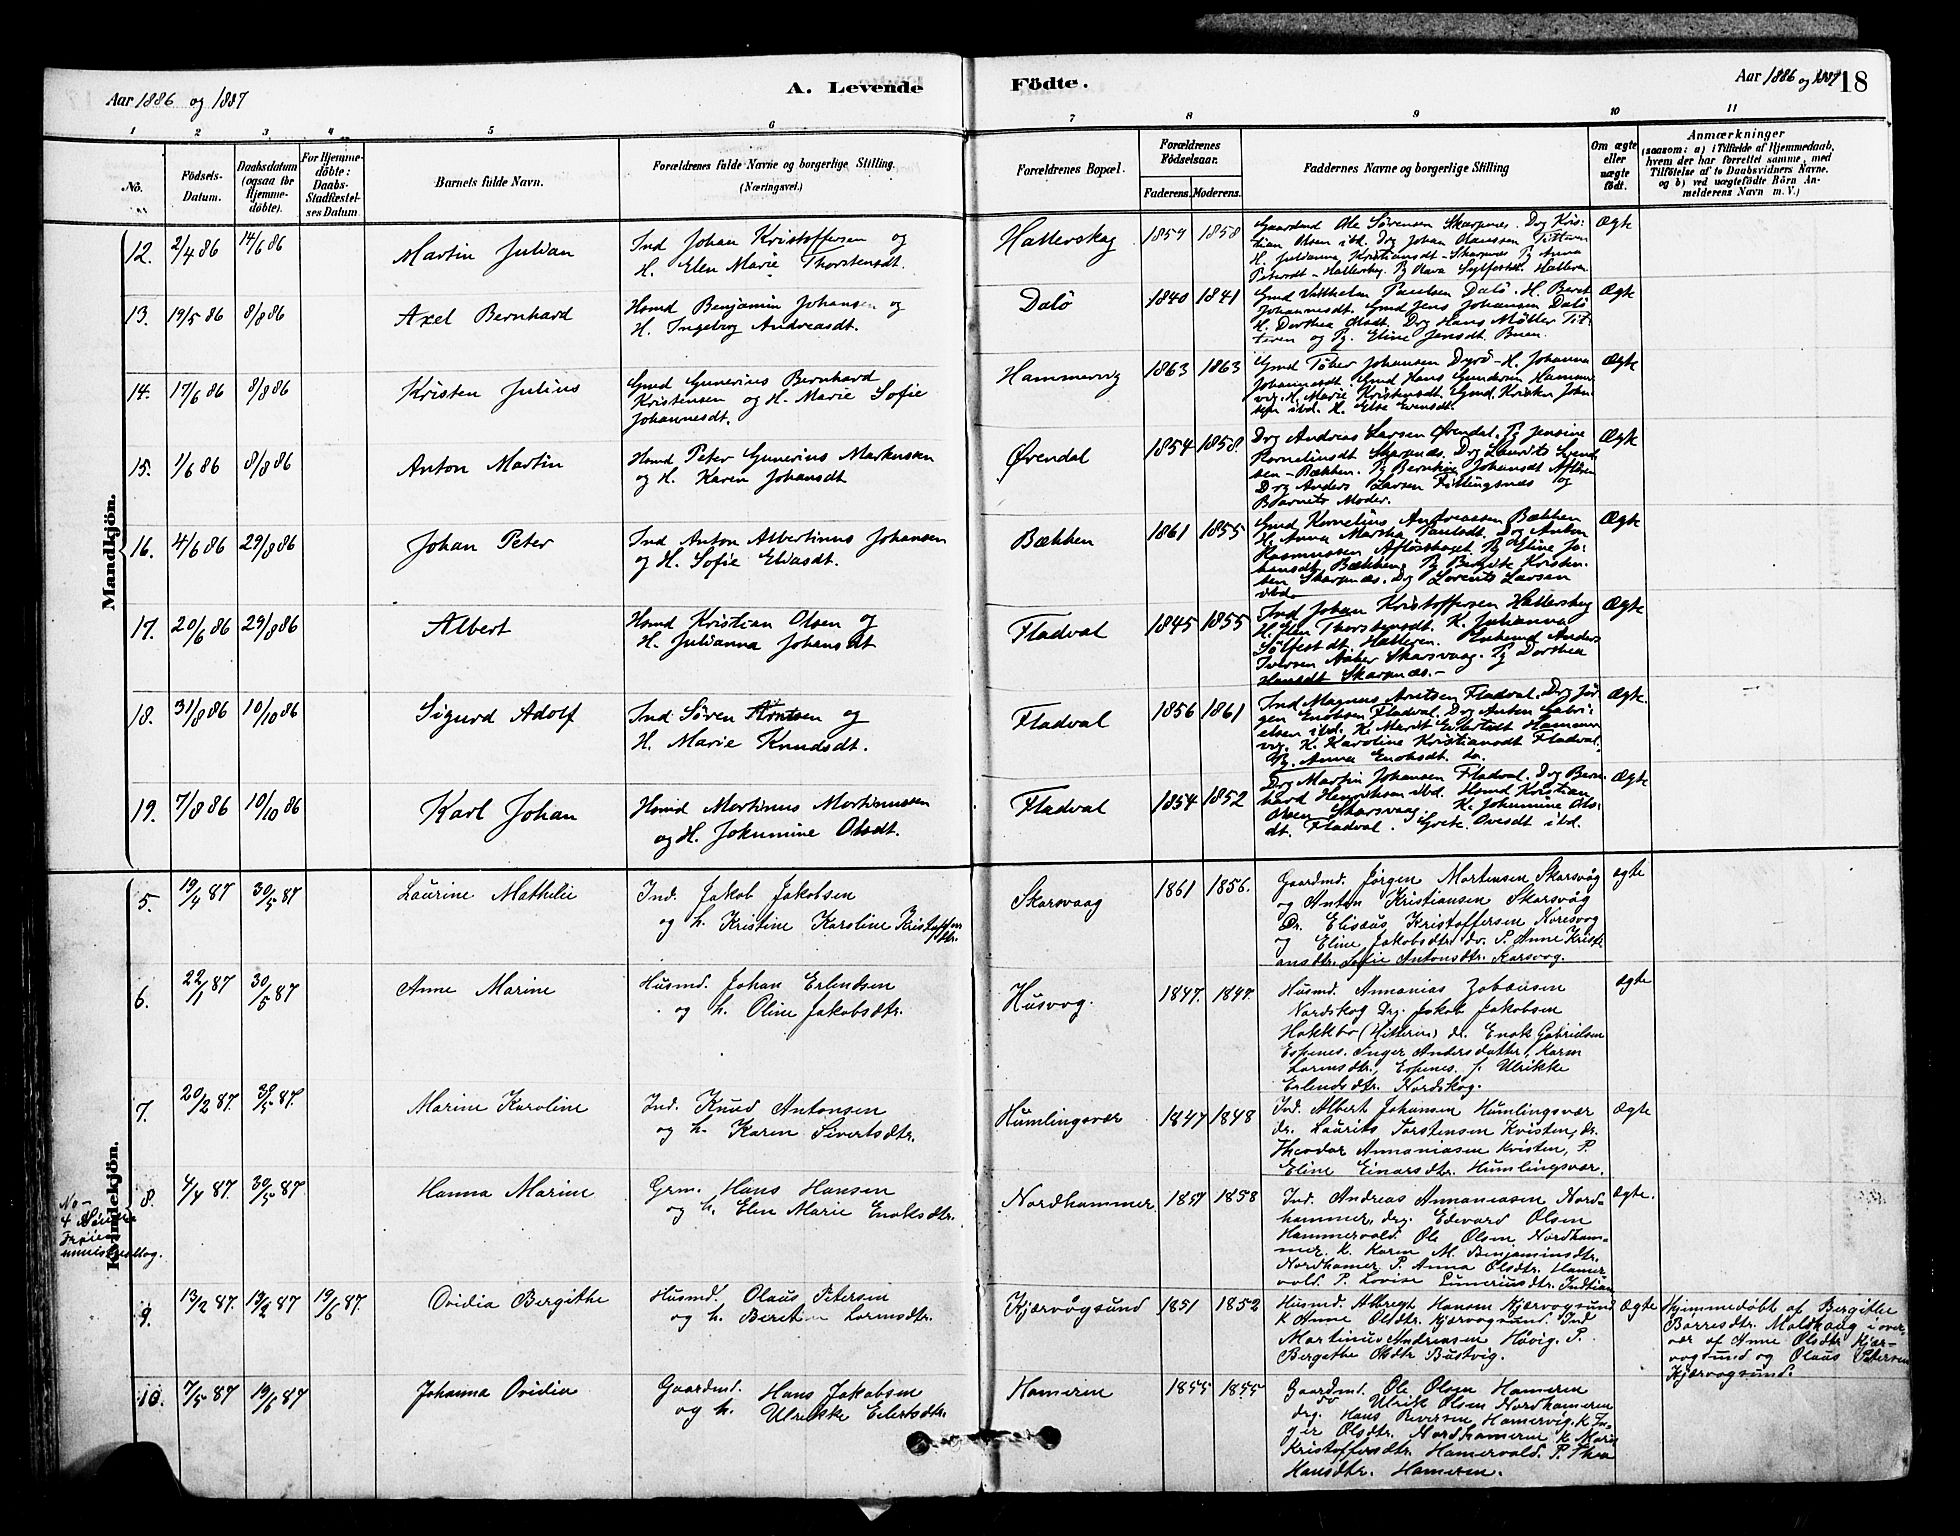 Aar 1886 og 1887
A. Levende
Födte.
Aar 1886 og 1887
18
1 2 3 4 5 6 7 8 9 10 11
No.
Födsels-
Datum.
Daabsdatum
(ogsaa for
Hjemme-
döbte).
For Hjemme-
döbte:
Daabs-
Stadfæstel-
ses Datum
Barnets fulde Navn.
Forældrenes fulde Navne og borgerlige Stilling.
(Næringsvei.)
Forældrenes Bopæl.
Forældrenes
Födselsaar.
Faderens. Moderens.
Faddernes Navne og borgerlige Stilling
Om ægte
eller
uægte
födt.
Anmærkninger
(saasom: a) i Tilfælde af Hjemmedaab,
hvem der har forrettet samme, med
Tilföielse af to Daabsvidners Navne.
og b) ved uægtefödte Börn An-
melderens Navn m. V.)
Mandkjön.
12. 2/4 86 14/6 86 Martin Julian
Ind Johan Kristoffersen og
H. Elen Marie Thorstensdt.
Hatterskog 1859 1858
Gaardmd Ole Sørensen Skarpnes. Drg Kris-
tian Olsen ibd. Drg Johan Olaussen Titteren
H. Julianna Kristiansdt - Skarpnes Pg Anna
Petersdt - Hatterskog. Pg Olava Sylfestdt. Hatteren
Ægte
13. 19/5 86 8/8 86 Axel Bernhard
Hsmd Benjamin Johansen og
H. Ingebrg Andreasdt.
Dalö 1840 1841
Gmd Vilhelm Paulsen Dalö. H. Beret
Johannesdt. Gmd Jens Johansen Dalö
H. Dorthea Olsdt. Drg Hans Møller Tit-
teren og Pg. Eline Jensdt. Buen
Ægte
14. 17/6 86 8/8 86 Kristen Julius
Gmd Gunerius Bernhard
Kristensen og H. Marie Sofie
Johannesdt.
Hammervig 1863 1863
Gmd Peter Johansen Dyrö - H. Johanna
Johannesdt. Gmd Hans Gundersen Hammer-
vig. H. Marie Kristensdt. Gmd. Kristen Johan-
sen ibd. H. Else Evensdt.
Ægte
15. 1/6 86 8/8 86 Anton Martin
Hsmd Peter Gunerius Markussen
og H. Karen Johansdt
Ørendal 1854 1858.
Drg Andreas Larsen Ørendal. Pg Jensine
Korneliusdt Skarpnæs. Drg Laurits Svend
sen - Bækken. Pg Bernhine Johansdt Afløsen
Drg Anders Larsen Fillingsnæs og
Barnets Moder.
Ægte
16. 4/6 86 29/8 86 Johan Peter
Ind Anton Albertinus Johansen
og H. Sofie Eliasdt.
Bækken 1861 1855
Gmd Kornelius Andreassen Bækken
H. Anna Martha Paulsdt. Drg Anton
Rasmussen Afløshaget. Pg Eline Jo-
hansdt, Bækken. Pg Bergite Kristen-
sen Skarpnæs. Drg Lorents Larsen
ibd.
Ægte
17. 20/6 86 29/8 86 Albert
Hsmd Kristian Olsen og
H. Julianna Johansdt
Fladval 1845 1855
Ind Johan Kristoffersen Hatterskog
H. Elen Thorstensdt. K. Julianna
Sølfestdt. Hatteren. Enkemd Anders
Iversen Aaker Skarsvaag. Pg Dorthea
Hansdt Skarpnæs. -
Ægte
18. 31/8 86 10/10 86 Sigurd Adolf
Ind Sören Arntsen og
H. Marie Knudsdt.
Fladval 1856 1861
Ind Magnus Arntsen Fladval. Drg Jør-
gen Enoksen Fladval. Drg Anton Gabri-
elsen ibd. K. Merit Eilertsdt Hammer
vig. K. Karoline Kristiansdt Fladval.
Pg. Anna Enoksdt. do.
Ægte.
19. 7/8 86 10/10 86 Karl Johan
Hsmd Martinus Martinussen
og H. Jokumine Olsdt.
Fladval 1854 1852
Drg Martin Johansen Fladval. Drg Bern-
hard Henriksen ibd. Hsmd Kristian
Olsen Skarsvaag. K. Johumine Ols-
dt. Fladval. Grete Ovesdt ibd.
Ægte
Kvindekjön.
5. 19/4 87 30/5 87 Laurine Mathilie
Ind. Jakob Jakobsen
og h. Kristine Karoline Kristoffers
dtr.
Skarsvaag 1861 1856.
Gaardmd. Jørgen Mortensen Skarsvåg
og Anton Kristiansen Skarsvåg
Dr. Elisæus Kristoffersen Noresvog
og Eline Jakobsdtr do. P. Anne Kristi
ansdtr. Sofie Antonsdtr. Karsvog.
ægte
6. 22/1 87 30/5 87 Anne Marine
Husmd. Johan Erlendsen
og h. Oline Jakobsdtr.
Husvog. 1847. 1847.
Husmd. Annanias Zobæusen
Nordskog Drg. Jakob Jakobsen
Hokkbo (Hitteren) dr. Enok Gabrielsen
Espenes. Inger Andersdatter, Karen
Lornsdtr, Espenes. f. Ulrikke
Erlendsdtr. Nordskog.
ægte
7. 20/2 87. 30/5 87. Marine Karoline
Ind. Knud Antonsen
og h. Karen Sivertsdtr.
Humlingsvær 1847 1848
Ind. Albert Johansen Humlingsvær
dr. Laurits Torstensen Kvisten, dr.
Theodor Annaniasen Kvisten, P.
Eline Einarsdtr. Humlingsvær.
ægte
8. 4/4 87. 30/5 87 Hanna Marine
Grm. Hans Hansen
og h. Elen Marie Enoksdtr.
Nordhammer 1857 1858
Ind. Andreas Annaniasen Nord-
hammer, drg. Edevard Olsen
Hammervold. Ole Olsen Nordham-
mer. K. Karen M. Benjaminsdtr.
Nordhamer P. Anna Olsdtr. Hamer
vold. P. Lovise Gunneriusdtr. Indtian
ægte.
No
4
9. 13/2 87. 19/4 87 19/6 87. Ovidia Bergithe
Husmd. Olaus Petersen
og h. Beret Lornsdtr.
Kjærvågsund 1851 1852
Husmd. Albregt Hansen Kjærvogsund
K Anne Olsdtr. Kjærvogsund. Ind
Martinus Andreasen Høvig. P.
Bergithe Olsdtr Bustvig.
ægte
Hjemmedöbt af Bergithe
Børresdtr. Moldhaug i over-
vær af Anne Olsdtr. Kjær-
vogsund og Olaus Petersen
Kjærvogsund.
10. 7/5 87. 19/6 87 Johanna Ovidia
Gaardmd. Hans Jakobsen
og h. Ulrikke Eilertsdtr.
Hameren 1855 1855
Gaardmd. Ole Olsen Hameren
do Ulrik Olsen Nordhameren
drg. Hans Iversen Hamervig. K In-
ger Olsdtr. Nordhameren K Marit
Kristoffersdtr. Hamervold. P. Thea
Hansdtr. Hameren.